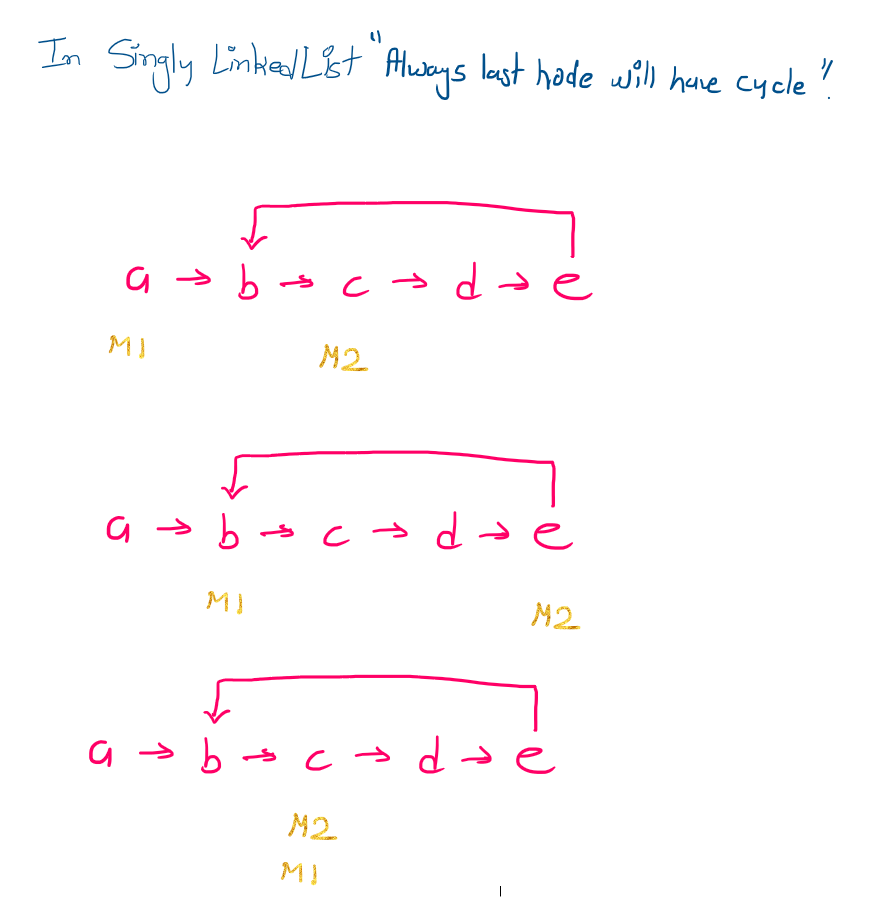 In Singly LinkedList "Always last node will have cycle"
a → b → c → d → e
M1 M2
a → b → c → d → e
M1 M2
a → b → c → d → e
M2
M1